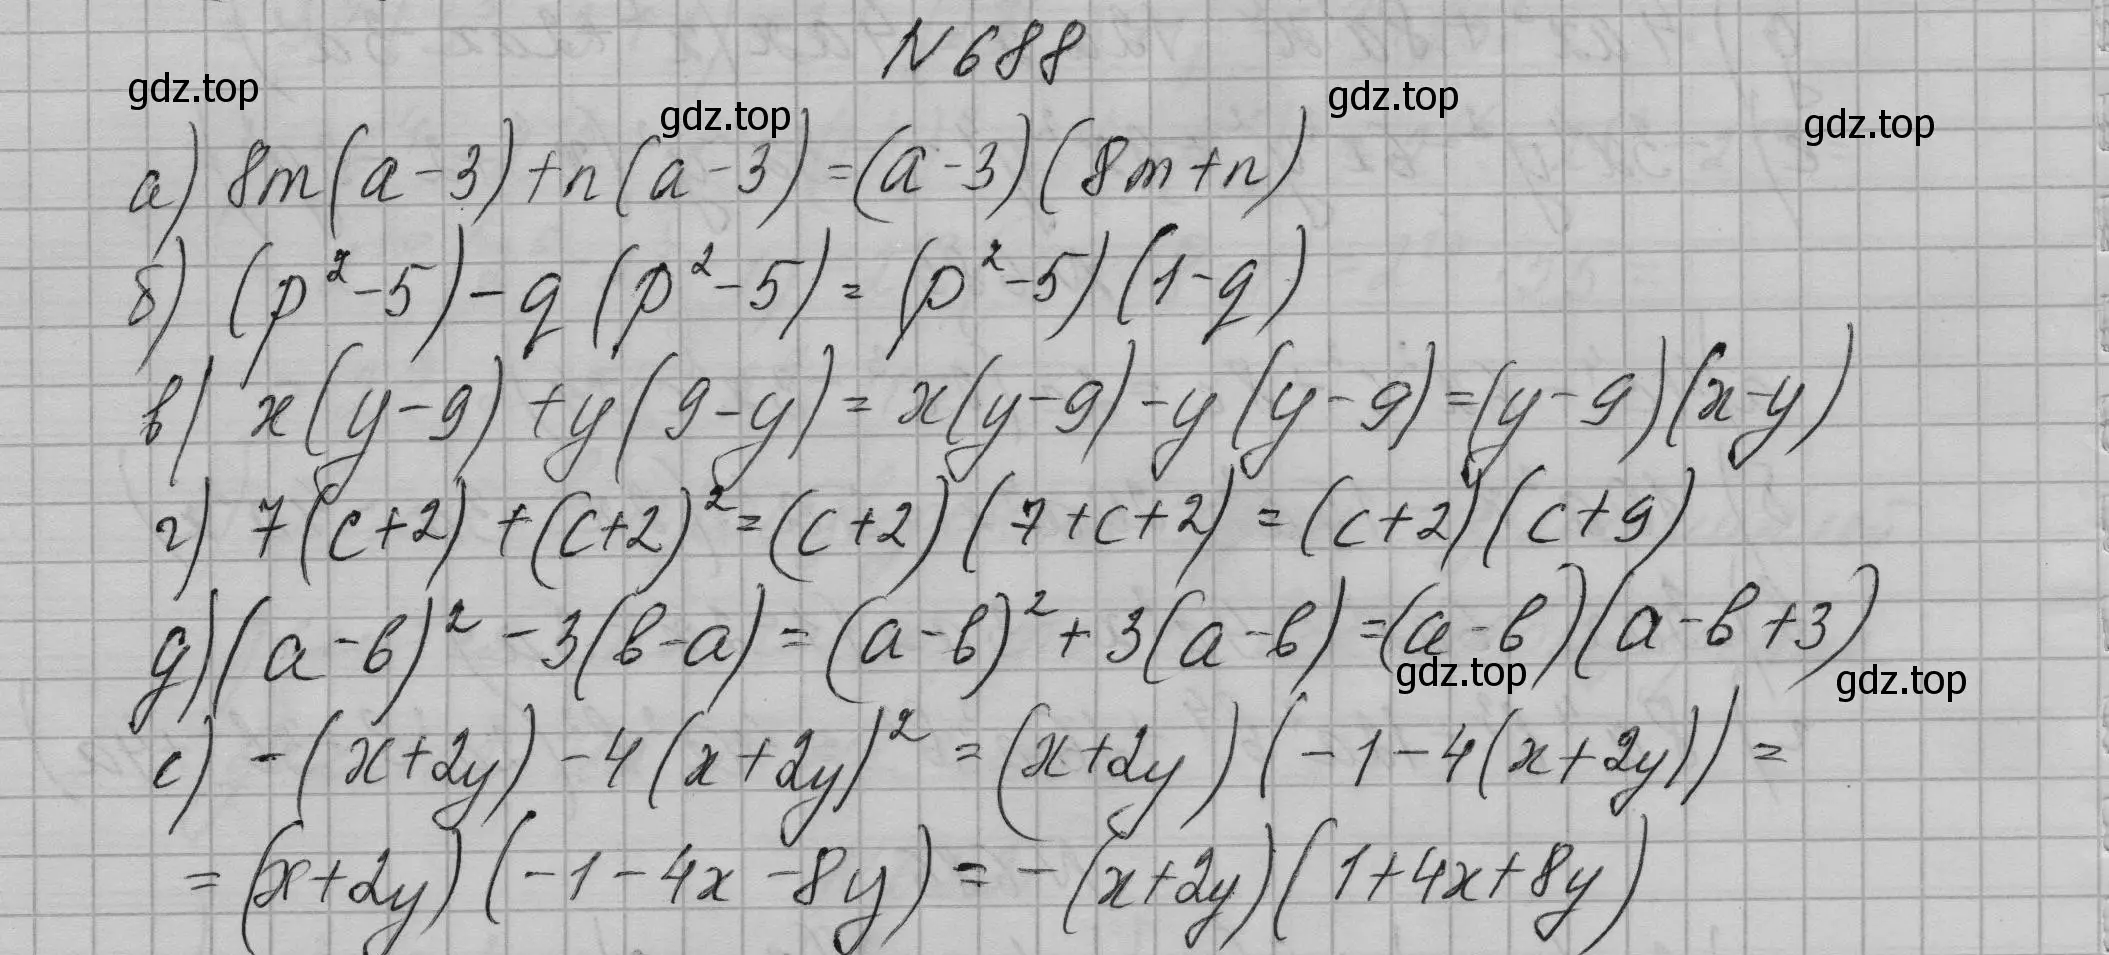 N688
gdz.top gdz.top gdz.top gdz.top
а) 8m(a-3)+n(a-3)=(a-3)(8m+n)
б) (p²-5)-q(p²-5)=(p²-5)(1-q)
в) x(y-9)+y(9-y)=x(y-9)-y(y-9)=(y-9)(x-y)
г) 7(c+2)+(c+2)²=(c+2)(7+c+2)=(c+2)(c+9)
д) (a-b)²-3(b-a)=(a-b)²+3(a-b)=(a-b)(a-b+3)
gdz.top gdz.top
е) -(x+2y)-4(x+2y)²=(x+2y)(-1-4(x+2y))=
=(x+2y)(-1-4x-8y)=-(x+2y)(1+4x+8y)